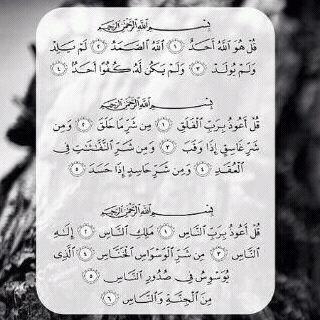 بِسْمِ ٱللَّهِ ٱلرَّحْمَٰنِ ٱلرَّحِيمِ
قُلْ هُوَ ٱللَّهُ أَحَدٌ ١ ٱللَّهُ ٱلصَّمَدُ ٢ لَمْ يَلِدْ
وَلَمْ يُولَدْ ٣ وَلَمْ يَكُن لَّهُ كُفُوًا أَحَدٌ ٤
بِسْمِ ٱللَّهِ ٱلرَّحْمَٰنِ ٱلرَّحِيمِ
قُلْ أَعُوذُ بِرَبِّ ٱلْفَلَقِ ١ مِن شَرِّ مَا خَلَقَ ٢ وَمِن
شَرِّ غَاسِقٍ إِذَا وَقَبَ ٣ وَمِن شَرِّ ٱلنَّفَّٰثَٰتِ فِى
ٱلْعُقَدِ ٤ وَمِن شَرِّ حَاسِدٍ إِذَا حَسَدَ ٥
بِسْمِ ٱللَّهِ ٱلرَّحْمَٰنِ ٱلرَّحِيمِ
قُلْ أَعُوذُ بِرَبِّ ٱلنَّاسِ ١ مَلِكِ ٱلنَّاسِ ٢ إِلَٰهِ
ٱلنَّاسِ ٣ مِن شَرِّ ٱلْوَسْوَاسِ ٱلْخَنَّاسِ ٤ ٱلَّذِى
يُوَسْوِسُ فِى صُدُورِ ٱلنَّاسِ ٥
مِنَ ٱلْجِنَّةِ وَٱلنَّاسِ ٦